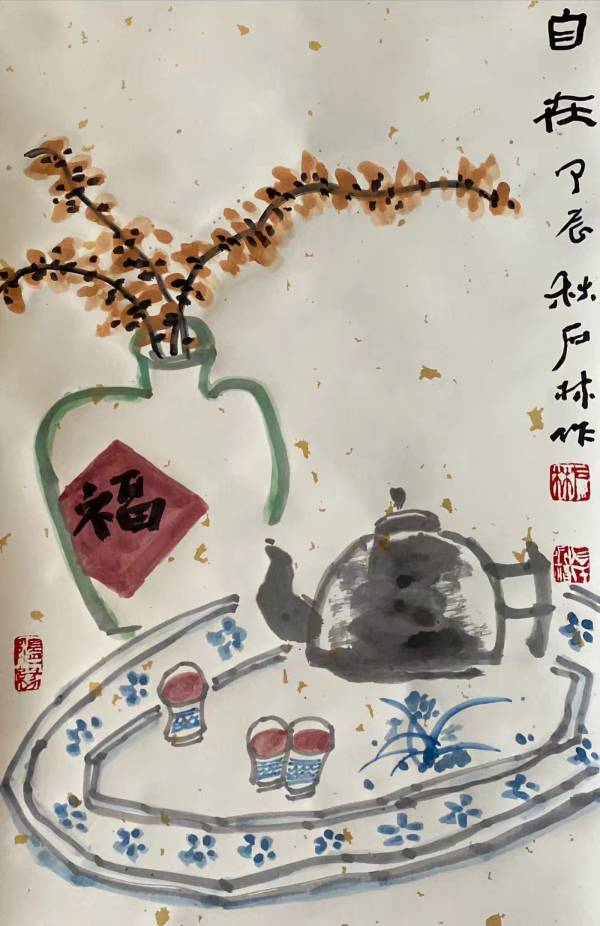 自在
甲辰秋石林作
福